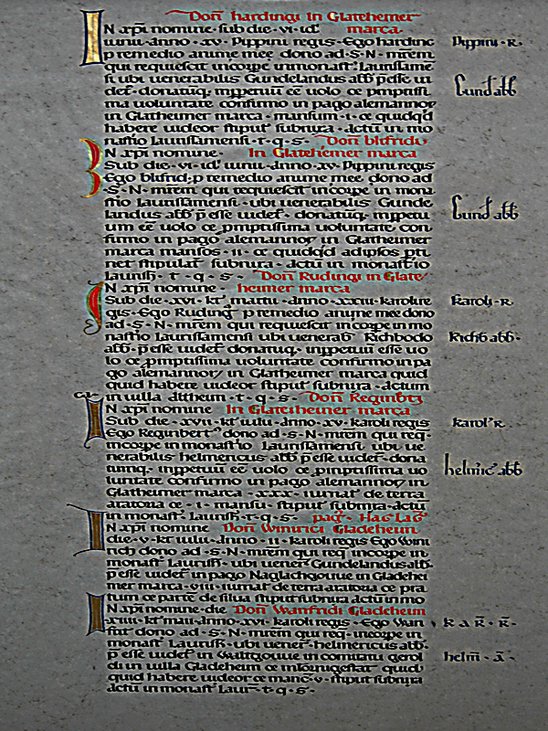 Don̄ hardingi In Glateheimer
N xp̄i nomine · sub die · vi · id̄ marca ·
iunii · anno · xv · Pippini regis · Ego harding Pippini · R ·
p remedio anime mee dono ad · S · N · mr̄em
qui requiescit in corpe in monast̄ Laurissame
si ubi uenerabilis Gundelandus abb p̄esse ui Gund abb
det · donatūq · in ppetuū eē uolo ce pmptissi
ma uoluntate confirmo in pago alemannor
in Glatheimer marca · mansum · i · ce quidqd̄
habere uideor stiput subnixa · actū in mo
nastio Laurissamensi · t · q · s · Don̄ blitfridi
N xp̄i nomine · In Glateheimer marca
Sub die · vi · id iunii · anno · xv · Pippini regis
Ego blitfrid · p remedio anime mee dono ad
· S · N · mr̄em qui requiescit in corpe in mona
stio Laurissamensi · ubi uenerabilis Gunde
landus abb p̄ esse uidet · donatūq · in ppetu Gund abb
um eē uolo ce pmptissima uoluntate · con
firmo in pago alemannor in Glatheimer
marca mansos · ii · ce quidqd̄ adipsos pti
net stipulat subnixa · actū in monastio
Laurissh · t · q · s · Don̄ Rudingi in Glate
N xp̄i nomine · heimer marca
Sub die · xvi · kl̄ martii · anno · xxiii · karoli re karoli · R ·
gis · Ego Ruding p remedio anime mee dono
ad · S · N · mrēm qui requiescit in corpe in mo
nastio Laurissamensi ubi uenerab Richbodo Richb abb ·
abb · p̄ esse uidet donatūq · in ppetuū eē uo
lo ce pmptissima uoluntate confirmo in pa
go alemannor in Glatheimer marca quid
quid habere uideor stiput subnixa · actum
in uilla altheim · t · q · s · Don̄ Reginbt̄i
N xp̄i nomine In Glatesheimer marca
Sub die · xvii · kl̄ iulii · anno · xv · karoli regis karol R ·
Ego Reginbert dono ad · S · N · mrēm qui req ·
in corpe in monastio Laurissamensi ubi ue
nerabilis helmericus abb p̄ esse uidet · dona
tumq · in ppetuū eē uolo ce pmptissima uo helmric abb
luntate confirmo in pago alemannor in
Glatheimer marca · xxx · iurnat de terra
aratoria ce · i · mansū · stiput subnixa · actū
in monast Laurissh · t · q · s · pagꝰ · Haglagꝰ
N xp̄i nomine Don̄ Winirici Gladeheim
die · v · kl̄ iulii · anno · ii · karoli regis Ego Wini
rich dono ad · S · N · mrēm qui req in corpe in
monast Laurissh · ubi uener Gundelandus abb ·
p̄ esse uidet in pago Naglachgouue in Gladehei
mer marca · viii · iurnal de terra aratoria ce pra
tum ce parte de silua stiput subnixa actū in mo
N xp̄i nomine · die Don̄ Wanfridi Gladeheim
xiiii · kl̄ maii · anno · xvi · karoli regis · Ego Wan K A R̄ · R̄ ·
frit dono ad · S · N · mrēm qui req · in corpe in
monast Laurissh · ubi uener helmericus abb ·
p̄ esse uidet in Waltgouue in comitatu gerol helm̄ · A ·
di in uilla Gladeheim ce
quid habere uideor ce manc · v · stiput subnixa
actū in monast Laur · t · q · s ·